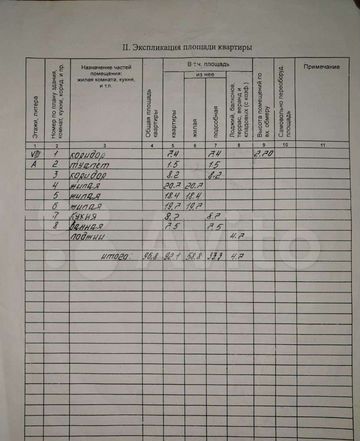 II. Экспликация площади квартиры
Этажи, литера
Номер по плану здания, комнат, кухни, корид. и пр.
Назначение частей помещения: жилая комната, кухня, и т.п.
Общая площадь квартиры
В т.ч. площадь
из нее
квартиры
жилая
подсобная
Лоджий, балконов террас, веранд и кладовых (с коэф.)
Высота помещений по вн. обмеру
Самовольно переоборуд. площадь
Примечание
1 2 3 4 5 6 7 8 9 10 11
VIII 1 коридор 7.4 7.4 2.70
А 2 туалет 1.5 1.5
3 коридор 8.2 8.2
4 жилая 20.7 20.7
5 жилая 18.4 18.4
6 жилая 19.7 19.7
7 кухня 8.7 8.7
8 ванная 7.5 7.5
лоджии 4.7
итого 96.8 92.1 58.8 33.3 4.7
Avito